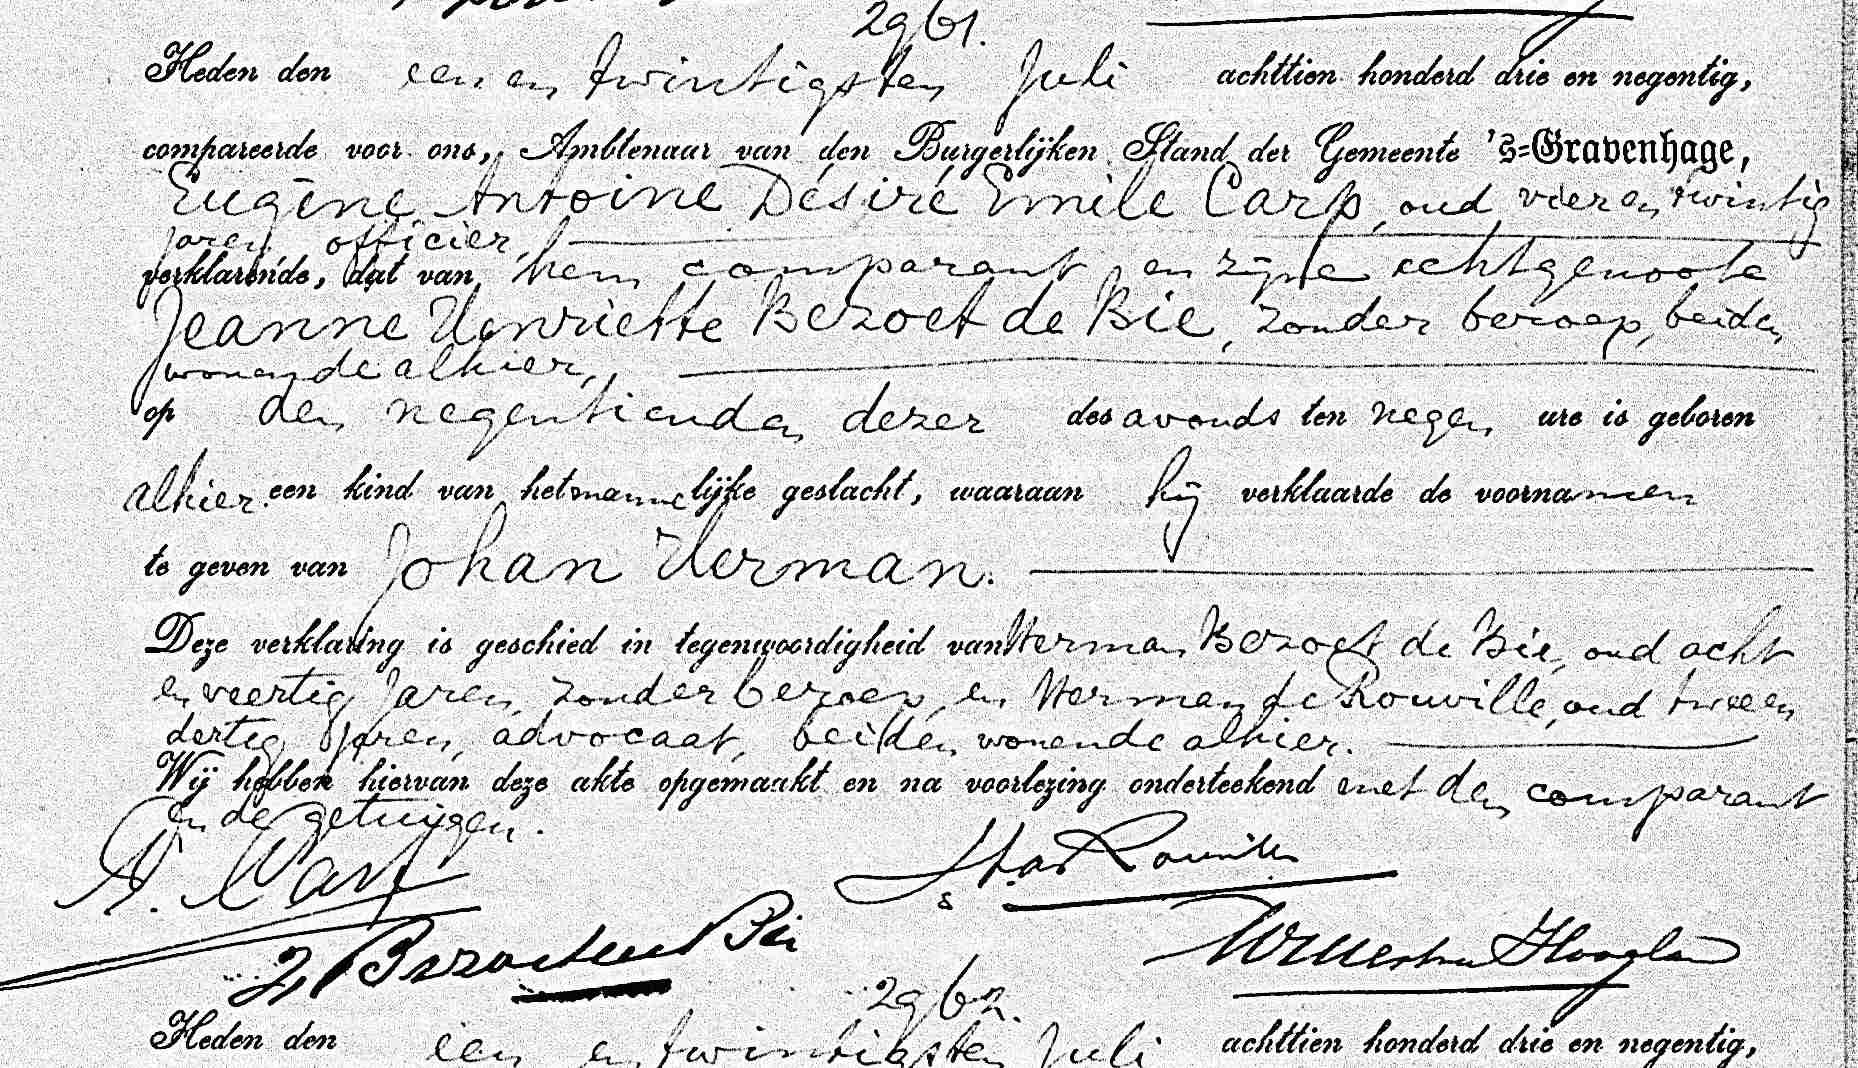 2961.
Heden den een en twintigsten Juli achttien honderd drie en negentig,
compareerde voor ons, Ambtenaar van den Burgerlijken Stand der Gemeente 's-Gravenhage,
Eugène Antoine Désiré Emile Carp, oud vier en twintig
jaren, officier,
verklarende, dat van hem comparant en zijne echtgenoote
Jeanne Henriette Bezoet de Bie, zonder beroep, beiden
wonende alhier,
op den negentienden dezer des avonds ten negen ure is geboren
alhier een kind van het mannelijke geslacht, waaraan hij verklaarde de voornamen
te geven van Johan Herman.
Deze verklaring is geschied in tegenwoordigheid van Herman Bezoet de Bie, oud acht
en veertig jaren, zonder beroep, en Herman de Rouville, oud twee en
dertig jaren, advocaat, beiden wonende alhier.
Wij hebben hiervan deze akte opgemaakt en na voorlezing onderteekend met den comparant
en de getuigen.
Carp
Rouville
Bezoet de Bie
2962.
Heden den een en twintigsten Juli achttien honderd drie en negentig,